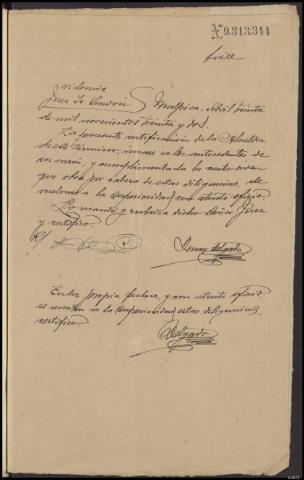 N.9.313.344
trece
Providencia
Juez Sr Condon S Malpica. Abril treinta
de mil novecientos treinta y dos.
La precedente certificación de la Alcaldia
de este término, unase a los antecedentes de
su razón, y cumplimentada la carta orden
que obra por cabeza de estas diligencias, de
vuelvase a la Superioridad con atento oficio.
Lo mandó y rubrica dicho Señor Juez
y certifico.
Delgado
En la propia fecha, y con atento oficio
se remiten a la Superioridad estas diligencias
certifico
Delgado